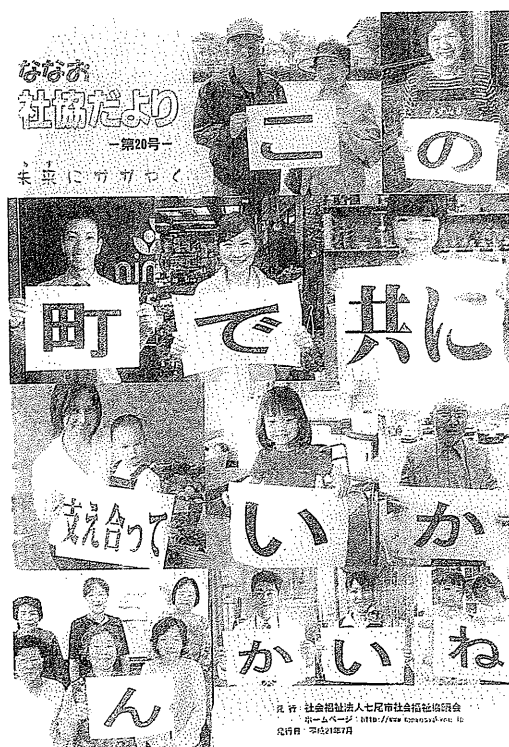 ななお
社協だより
－第20号－
未来にかがやく
この
nin
町で共に
支え合っていか
んかいね
発行：社会福祉法人七尾市社会福祉協議会
ホームページ：
発行日：平成21年7月